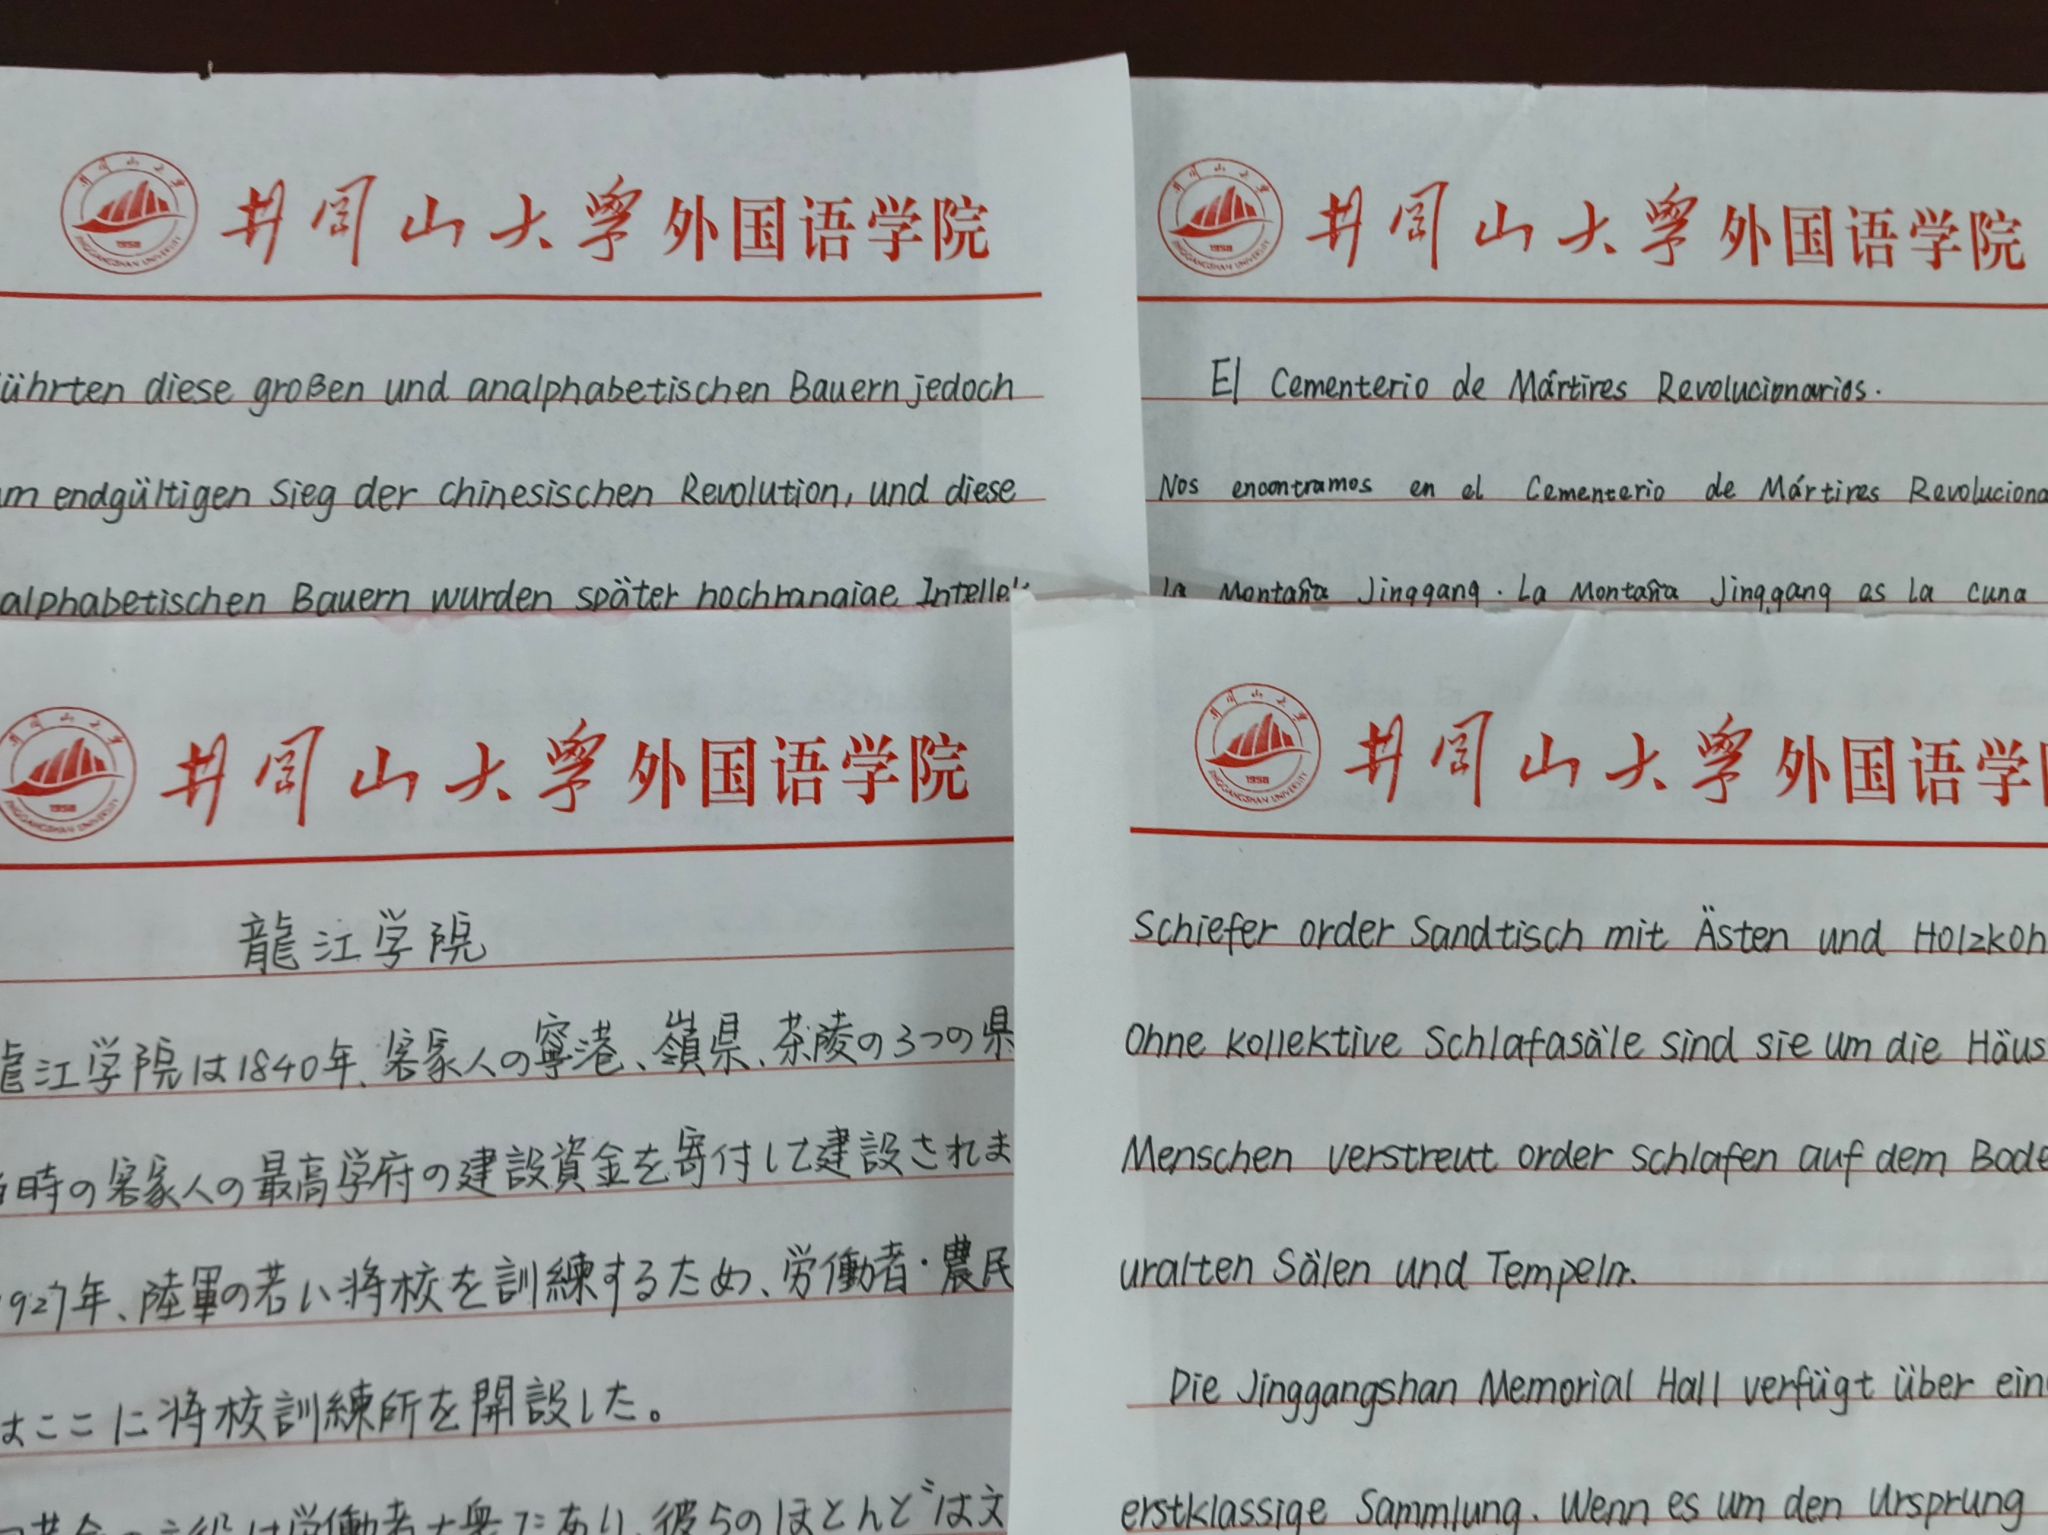 井冈山大学外国语学院
ührten diese großen und analphabetischen Bauern jedoch
m endgültigen Sieg der chinesischen Revolution, und diese
alphabetischen Bauern wurden später hochrangige Intellek
井冈山大学外国语学院
El Cementerio de Mártires Revolucionarios.
Nos encontramos en el Cementerio de Mártires Revoluciona
la Montaña Jinggang. La Montaña Jinggang es la cuna
井冈山大学外国语学院
龍江学院
龍江学院は1840年、客家人の寧港、嶺県、茶陵の3つの県
時の客家人の最高学府の建設資金を寄付して建設されま
927年、陸軍の若い将校を訓練するため、労働者・農民
はここに将校訓練所を開設した。
は労働者大衆であり、彼らのほとんどは文
井冈山大学外国语学
Schiefer order Sandtisch mit Ästen und Holzkoh
Ohne kollektive Schlafasäle sind sie um die Häus
Menschen verstreut order schlafen auf dem Bode
uralten Sälen und Tempeln.
Die Jinggangshan Memorial Hall verfügt über ein
erstklassige Sammlung. Wenn es um den Ursprung